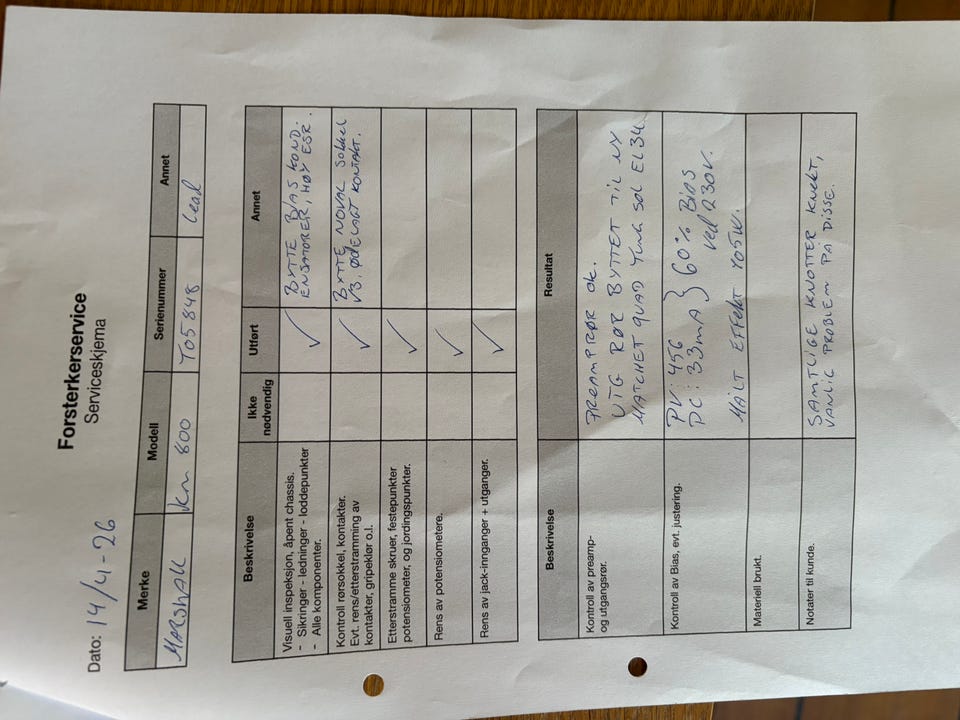 Forsterkerservice
Serviceskjema
Dato: 14/4-26
Merke Modell Serienummer Annet
MARSHALL km 800 T05848 Lead
Beskrivelse Ikke nødvendig Utført Annet
Visuell inspeksjon, åpent chassis.
- Sikringer - ledninger - loddepunkter
- Alle komponenter.
✓
BYTTE BIAS KOND.
ENSATORER, HØY ESR.
Kontroll rørsokkel, kontakter.
Evt. rens/etterstramming av
kontakter, gripeklør o.l.
✓
BYTTE NOVAL SOKKEL
V3. ØDELAGT KONTAKT.
Etterstramme skruer, festepunkter
potensiometer, og jordingspunkter.
✓
Rens av potensiometere.
✓
Rens av jack-innganger + utganger.
✓
Beskrivelse Resultat
Kontroll av preamp-
og utgangsrør.
PREAMPRØR OK.
UTG RØR BYTTET TIL NY
MATCHET QUAD TUNG SOL EL34.
Kontroll av Bias, evt. justering.
PV: 456
PC: 33mA } 60% Bias
ved 230V.
MÅLT EFFEKT 105W.
Materiell brukt.
Notater til kunde.
SAMTLIGE KNOTTER KNEKT,
VANLIG PROBLEM PÅ DISSE.